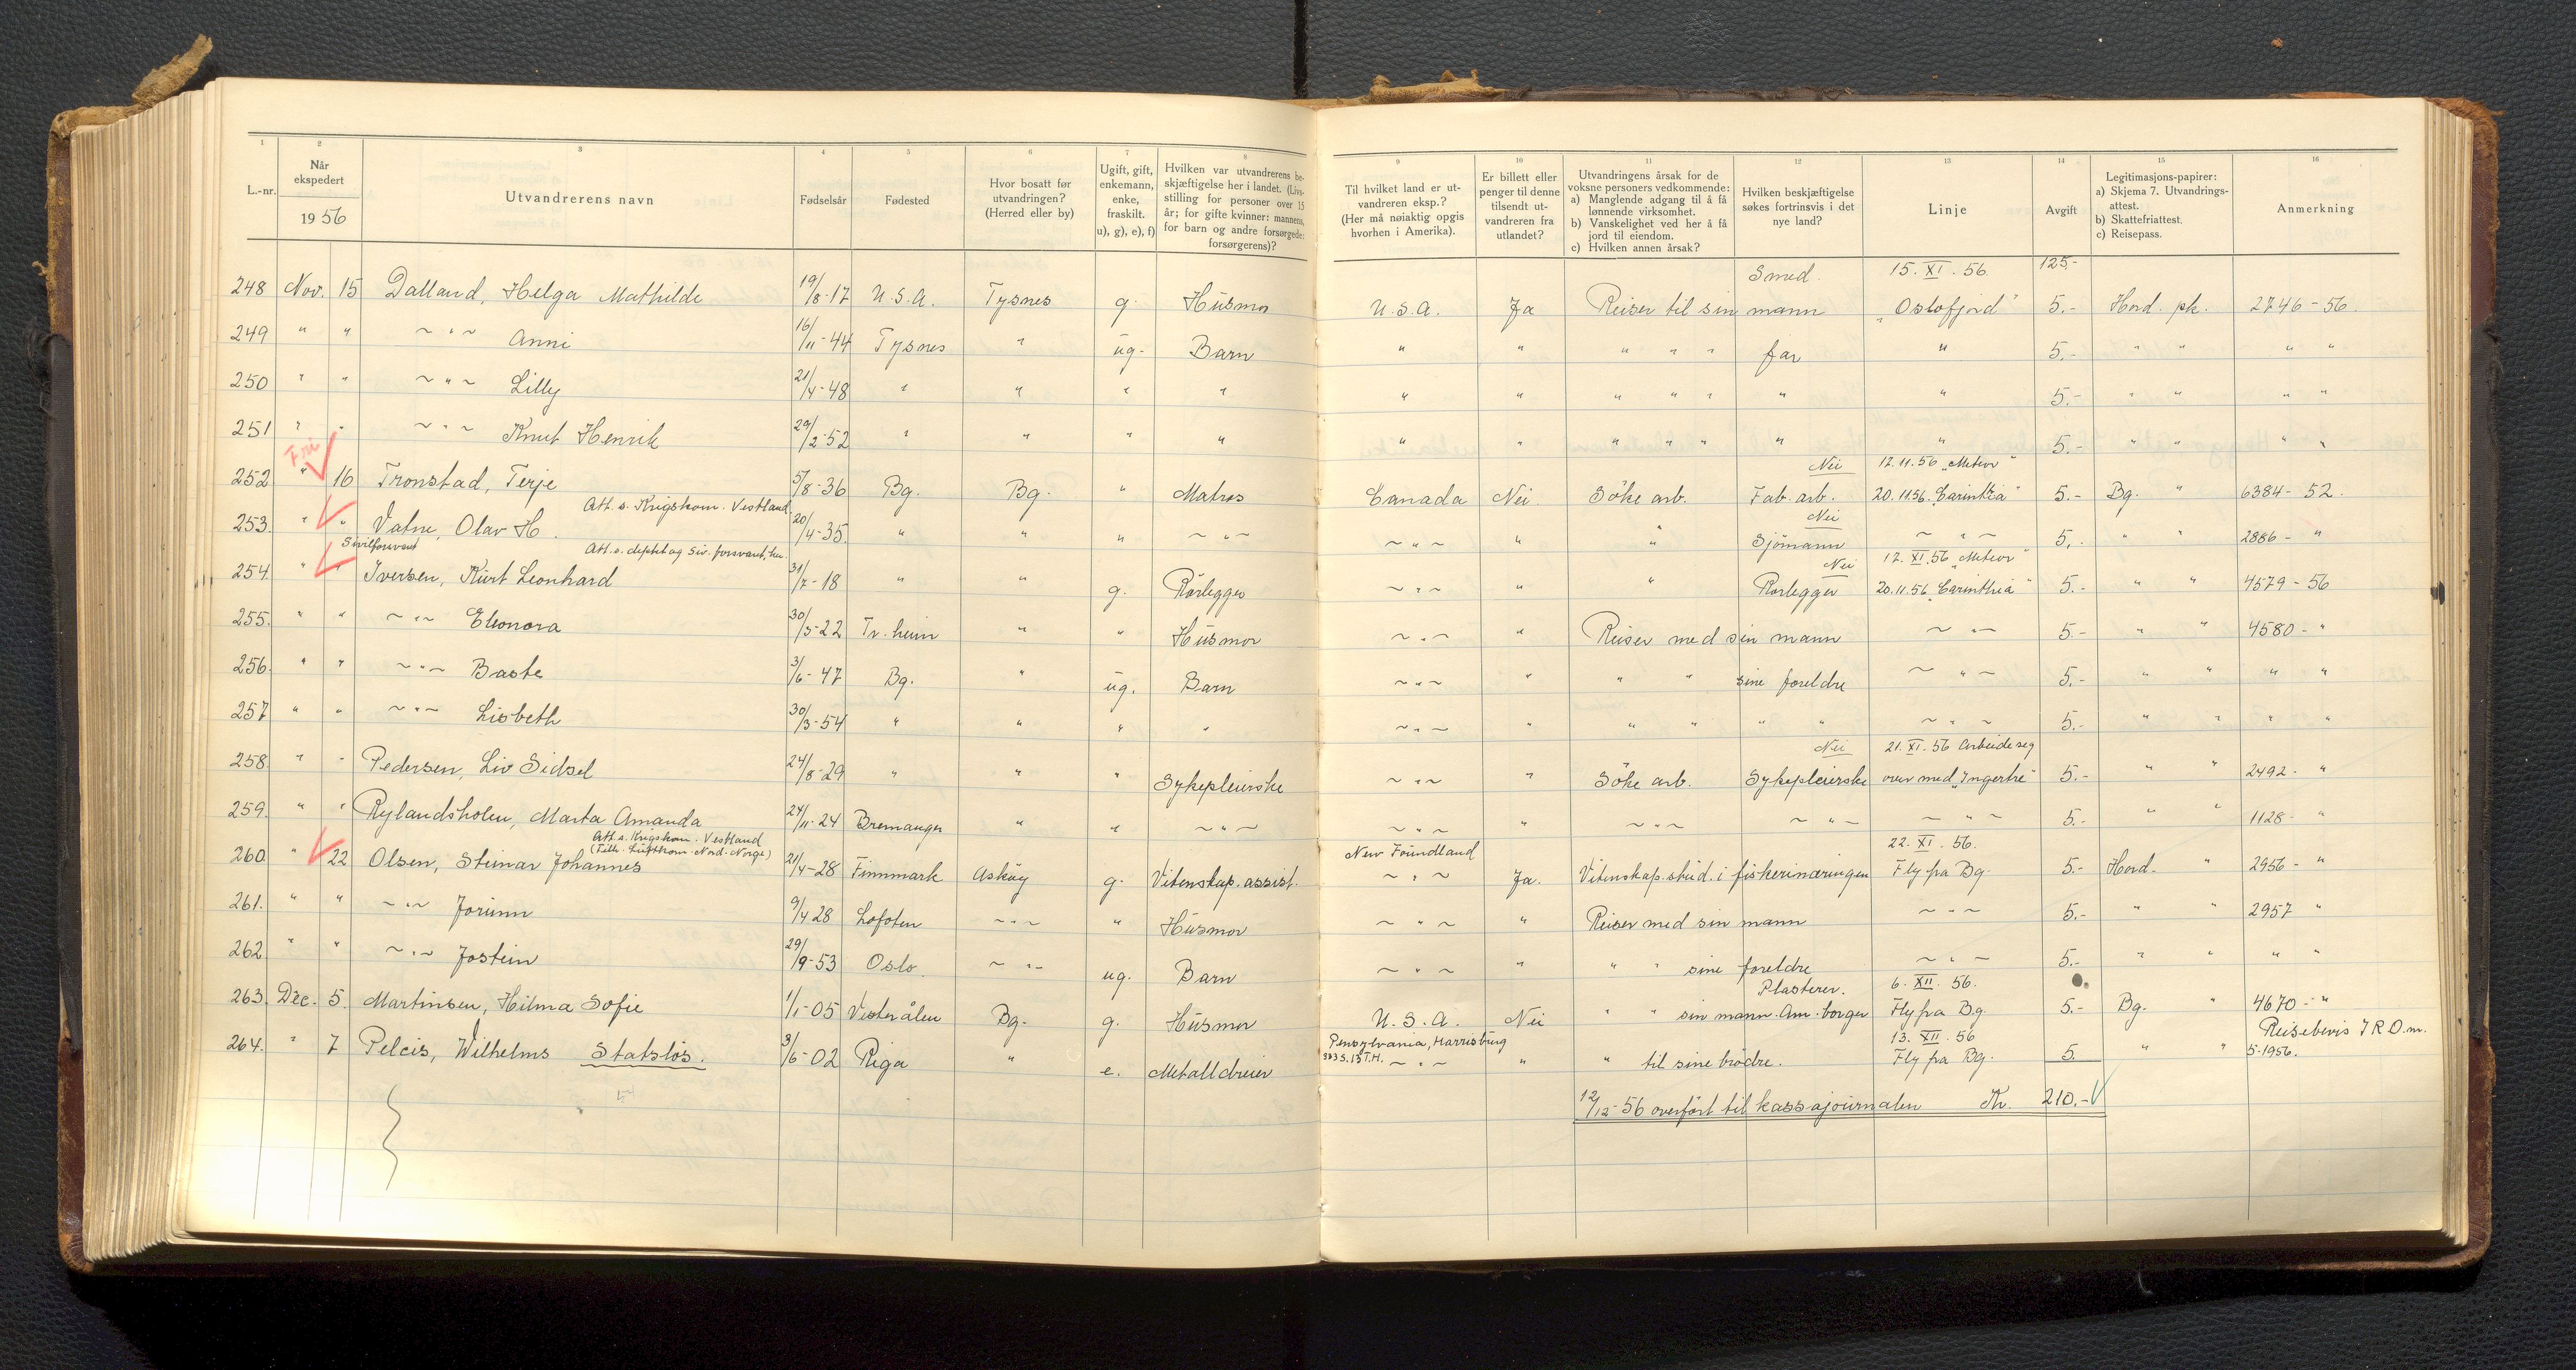 1 2 3 4 5 6 7 8 9 10 11 12 13 14 15 16
L.-nr. Når ekspedert 1956 Utvandrerens navn Fødselsår Fødested Hvor bosatt før utvandringen? (Herred eller by) Ugift, gift, enkemann, enke, fraskilt. u), g), e), f) Hvilken var utvandrerens beskjæftigelse her i landet. (Livsstilling for personer over 15 år; for gifte kvinner: mannens, for barn og andre forsørgede: forsørgerens)? Til hvilket land er utvandreren eksp.? (Her må nøiaktig opgis hvorhen i Amerika). Er billett eller penger til denne tilsendt utvandreren fra utlandet? Utvandringens årsak for de voksne personers vedkommende: a) Manglende adgang til å få lønnende virksomhet. b) Vanskelighet ved her å få jord til eiendom. c) Hvilken annen årsak? Hvilken beskjæftigelse søkes fortrinsvis i det nye land? Linje Avgift Legitimasjons-papirer: a) Skjema 7. Utvandringsattest. b) Skattefriattest. c) Reisepass. Anmerkning
Smed. 15. XI. 56. 125.-
248 Nov. 15 Dalland, Helga Mathilde 19/8-17 U.S.A. Tysnes g. Husmor U.S.A. Ja Reiser til sin mann "Oslofjord" 5.- Hord. pk. 2746-56.
249 " " ~ " ~ Anni 16/11-44 Tysnes " ug. Barn " " " " " far " 5.- " " " "
250 " " ~ " ~ Lilly 21/4-48 " " " " " " " " " " " 5.- " " " "
251 " " ~ " ~ Knut Henrik 29/2-52 " " " " " " " " " " " 5.- " " " "
Fri Nei 12.11.56 "Meteor"
252 " 16 Tronstad, Terje 5/8-36 Bg. Bg. " Matros Canada Nei Söke arb. Fab. arb. 20.11.56. "Carinthia" 5.- Bg. " 6384-52.
Att. s. Krigskom. Vestland Nei
253. " " Vatne, Olav H. 20/4-35. " " " ~ " ~ ~ " ~ " " Sjömann ~ " ~ 5,. " " 2886- "
Sivilforsvaret Att. s. deptet og Siv. forsvaret, her. Nei 12. XI. 56 "Meteor"
254. " " Iversen, Kurt Leonhard 31/7-18 " " g. Rörlegger ~ " ~ " " Rörlegger 20.11.56. "Carinthia" 5.- " " 4579-56
255. " " ~ " ~ Eleonora 30/5-22 Tr.heim " " Husmor ~ " ~ " Reiser med sin mann ~ " ~ 5.- " " 4580- "
256. " " ~ " ~ Baste 3/6-47 Bg. " ug. Barn ~ " ~ " " " sine foreldre ~ " ~ 5.- " " " "
257 " " ~ " ~ Lisbeth 30/3-54 " " " " ~ " ~ " " " " " ~ " ~ 5.- " " " "
Nei 21. XI. 56 Arbeide seg
258. " " Pedersen, Liv Sidsel 24/8-29 " " " Sykepleierske ~ " ~ " Söke arb. Sykepleierske over med "Ingertre" 5.- " " 2492- "
259. " " Rylandsholm, Marta Amanda 24/11-24 Bremanger " " ~ " ~ ~ " ~ " ~ " ~ ~ " ~ ~ " ~ 5.- " " 1128- "
Att. s. Krigskom. Vestland New Foundland 22. XI. 56.
(Tillr. Luftkom. Nord-Norge)
260. " 22 Olsen, Steinar Johannes 21/4-28 Finnmark Asköy g. Vitenskap. assist. ~ " ~ Ja. Vitenskap. stud. i fiskerinæringen Fly fra Bg. 5.- Hord. " 2956- "
261. " " ~ " ~ Jorunn 9/4 28 Lofoten ~ " ~ " Husmor ~ " ~ " Reiser med sin mann ~ " ~ 5.- " " 2957 "
262 " " ~ " ~ Jostein 29/9-53 Oslo. ~ " ~ ug. Barn ~ " ~ " " " sine foreldre ~ " ~ 5.- " " " "
Plasterer. 6. XII. 56.
263. Dec. 5. Martinsen, Hilma Sofie 1/1-05 Vesterålen Bg. g. Husmor U.S.A. Nei " " sin mann. Am. borger Fly fra Bg. 5.- Bg. " 4670- "
Pensylvania, Harrisburg 13. XII. 56 Reisebevis I R O.m.
264. " 7 Pelcis, Wilhelms Statslös. 3/6-02 Riga " e. Metalldreier 333 S. 13 T.H. ~ " ~ " " til sine brödre. Fly fra Bg. 5. " " 5-1956.
12/12-56 overfört til kassajournalen Kr. 210.-